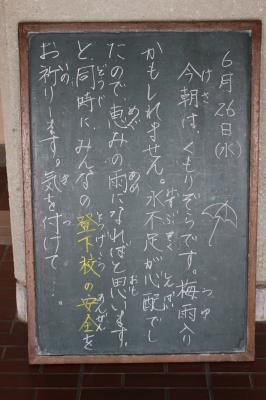 6月26日(水)
今朝は、くもりぞらです。梅雨入り
かもしれません。水不足が心配でし
たので、恵みの雨になればと思います。
と、同時に、みんなの登下校の安全を
お祈りします。気を付けて…。